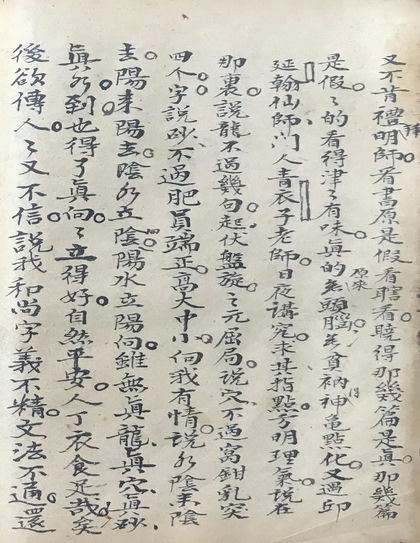 又不肯禮拜明師看書原是假看瞎看曉得那幾篇是真那幾篇
是假〻的看得津〻有味真的原來無頭腦無貧衲神龜點化又過邱
延翰仙師門人青衣子老師日夜講究求其指點方明理氣說在
那裏說龍不過幾句起伏盤旋之元屈局說穴不過窩鉗乳突
四个字說砂不過肥員端正高大中小向我有情說水陰來陰
去陽來陽去陰水立陰陽水立陽向雖無真龍真穴真砂
真水到也得了真向〻立得好自然平安人丁衣食足哉矣
後欲傳人〻又不信說我和尚字義不精文法不通還